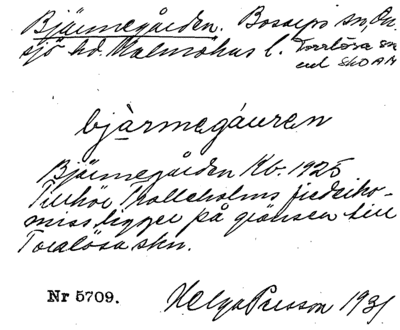 Bjärmegården. Bosarps sn, On-
sjö hd. Malmöhus l. Torrlösa sn
enl SkOAM
bjàrmegáuren
Bjärmegården Kb. 1925
Tillhör Trolleholms fideiko-
miss, ligger på gränsen till
Torrlösa skn.
Nr 5709. Helga Persson 1931